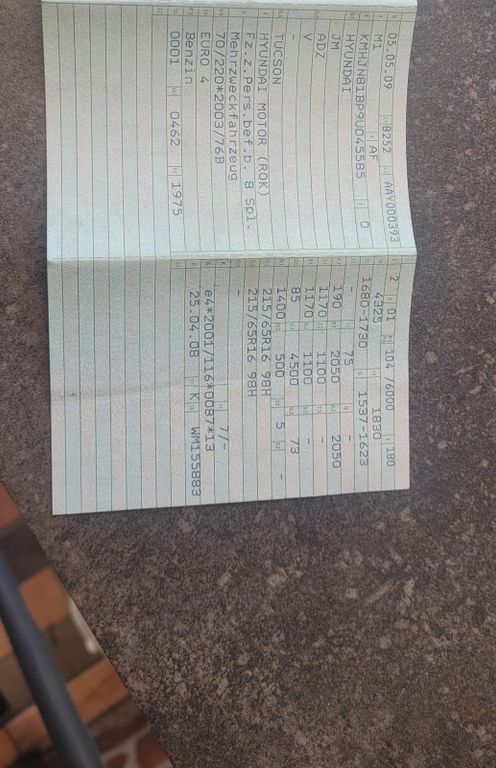 05.05.09 8252 AAY000393
M1 AF
KMHJN81BP9U045585 0
HYUNDAI
JM
ADZ
V
-
TUCSON
HYUNDAI MOTOR (ROK)
Fz.z.Pers.bef.b. 8 Spl.
Mehrzweckfahrzeug
70/220*2003/76B
EURO 4
Benzin
0001 0462 1975
2 01 104 /6000 180
4325 1830
1680-1730 1537-1623
- 75 -
190 2050 2050
1170 1100 -
1170 1100 -
85 4500 73
1400 500 5 -
215/65R16 98H
215/65R16 98H
-
7/-
e4*2001/116*0087*13
25.04.08 K WM155883